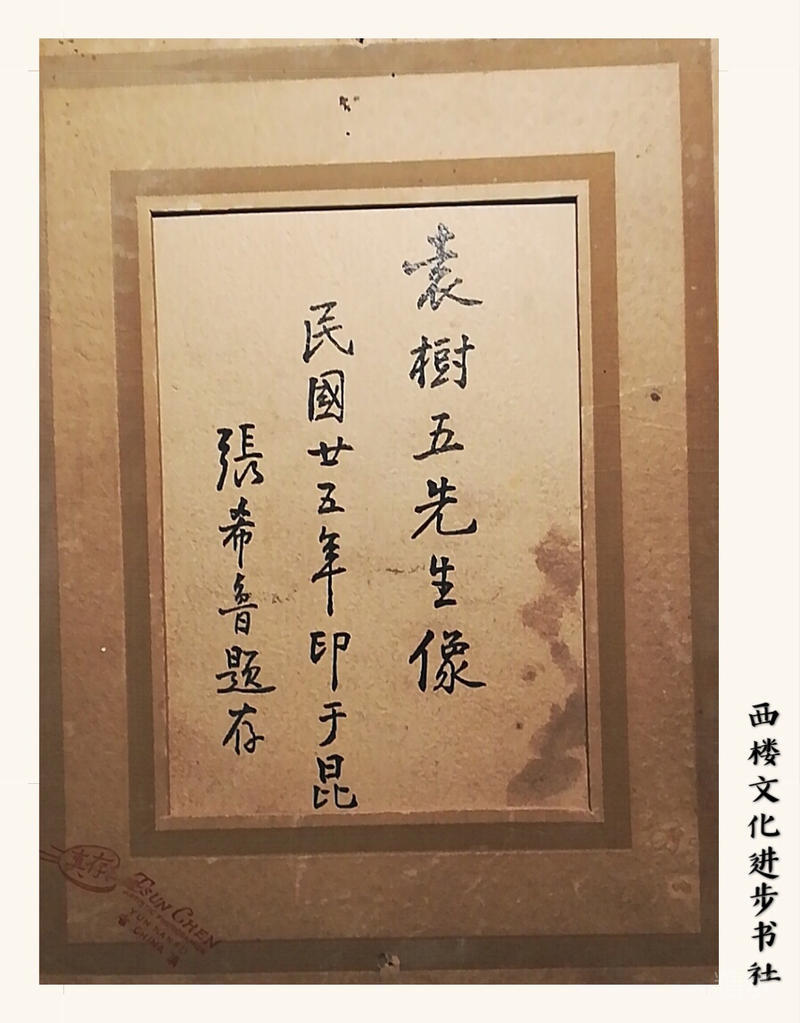 袁樹五先生像
民國廿五年印于昆
張希魯題存
真存
TSUN CHEN
CHINA
西楼文化进步书社